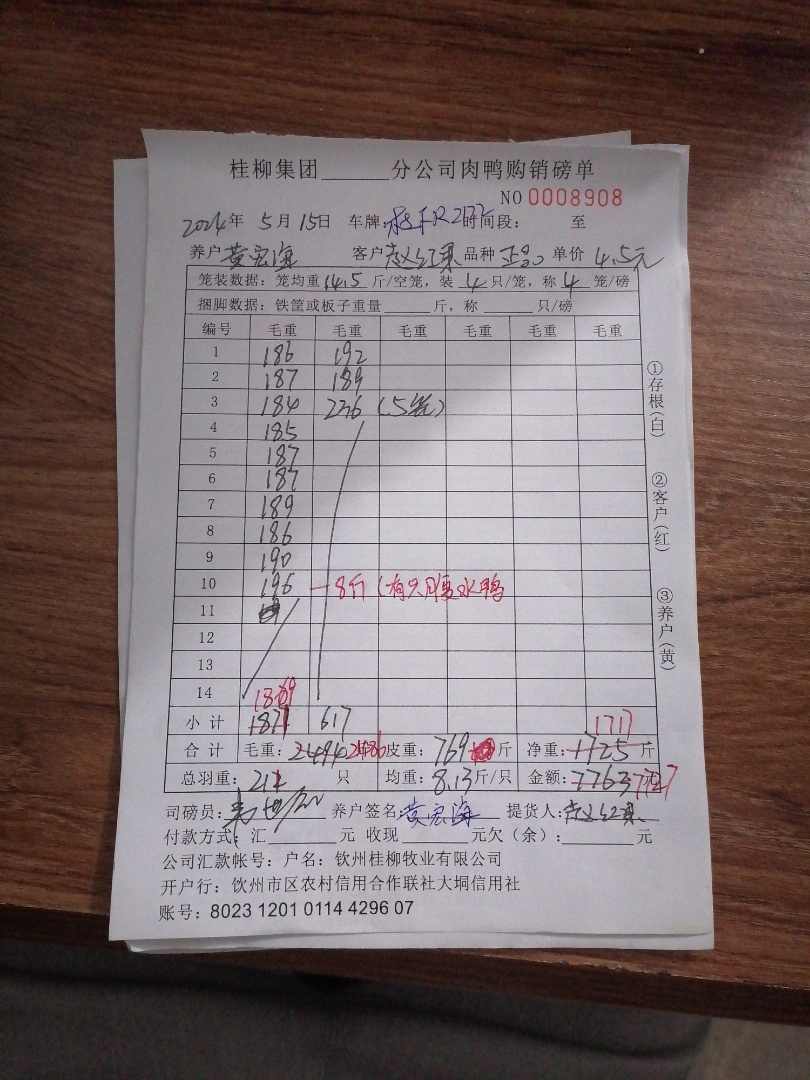 桂柳集团______分公司肉鸭购销磅单
NO 0008908
2024年 5月 15日 车牌: 时间段: 至
养户 黄宏海 客户 赵红果 品种 正品 单价 4.5元
笼装数据: 笼均重 14.5 斤/空笼, 装 4 只/笼, 称 4 笼/磅
捆脚数据: 铁筐或板子重量______斤, 称______只/磅
编号 毛重 毛重 毛重 毛重 毛重 毛重
1 186 192
2 187 189
3 184 236 (5笼)
4 185
5 187
6 187
7 189
8 186
9 190
10 196 -8斤 (有只腹水鸭
11
12
13
14 1869
小计 1877 617 1717
合计 毛重: 2494 2486 皮重: 769 斤 净重: 1725 斤
总羽重: 211 只 均重: 8.13斤/只 金额: 7763 7727
司磅员: 养户签名: 黄宏海 提货人: 赵红果
付款方式: 汇______元 收现______元欠(余):______元
公司汇款帐号: 户名: 钦州桂柳牧业有限公司
开户行: 钦州市区农村信用合作联社大垌信用社
账号: 8023 1201 0114 4296 07
①存根(白)
②客户(红)
③养户(黄)